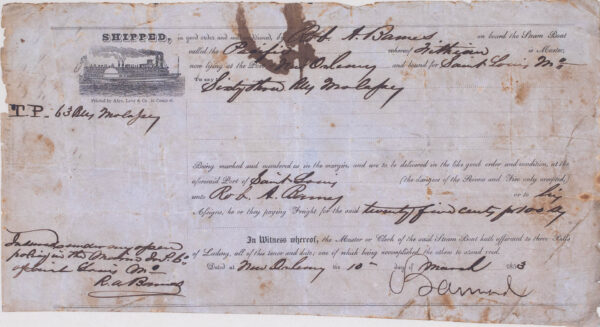 SHIPPED, in good order and well conditioned, by Rob. A. Barnes on board the Steam Boat
called the Pacific whereof is Master,
now lying at the Port of New Orleans and bound for Saint Louis Mo
To say
Sixty three Bls Molasses
Printed by Alex. Levy & Co.
T.P. 63 Bls Molasses
Being marked and numbered as in the margin, and are to be delivered in the like good order and condition, at the
aforesaid Port of Saint Louis (the dangers of the Rivers and Fire only excepted,)
unto Rob. A. Barnes or to his
Assigns, he or they paying Freight for the said twenty five cents p 100
In Witness whereof, the Master or Clerk of the said Steam Boat hath affirmed to three Bills
of Lading, all of this tenor and date; one of which being accomplished, the others to stand void.
Dated at New Orleans this 10 day of March 1853
Insured under my open
policy in the
of Saint Louis Mo
R. A. Barnes